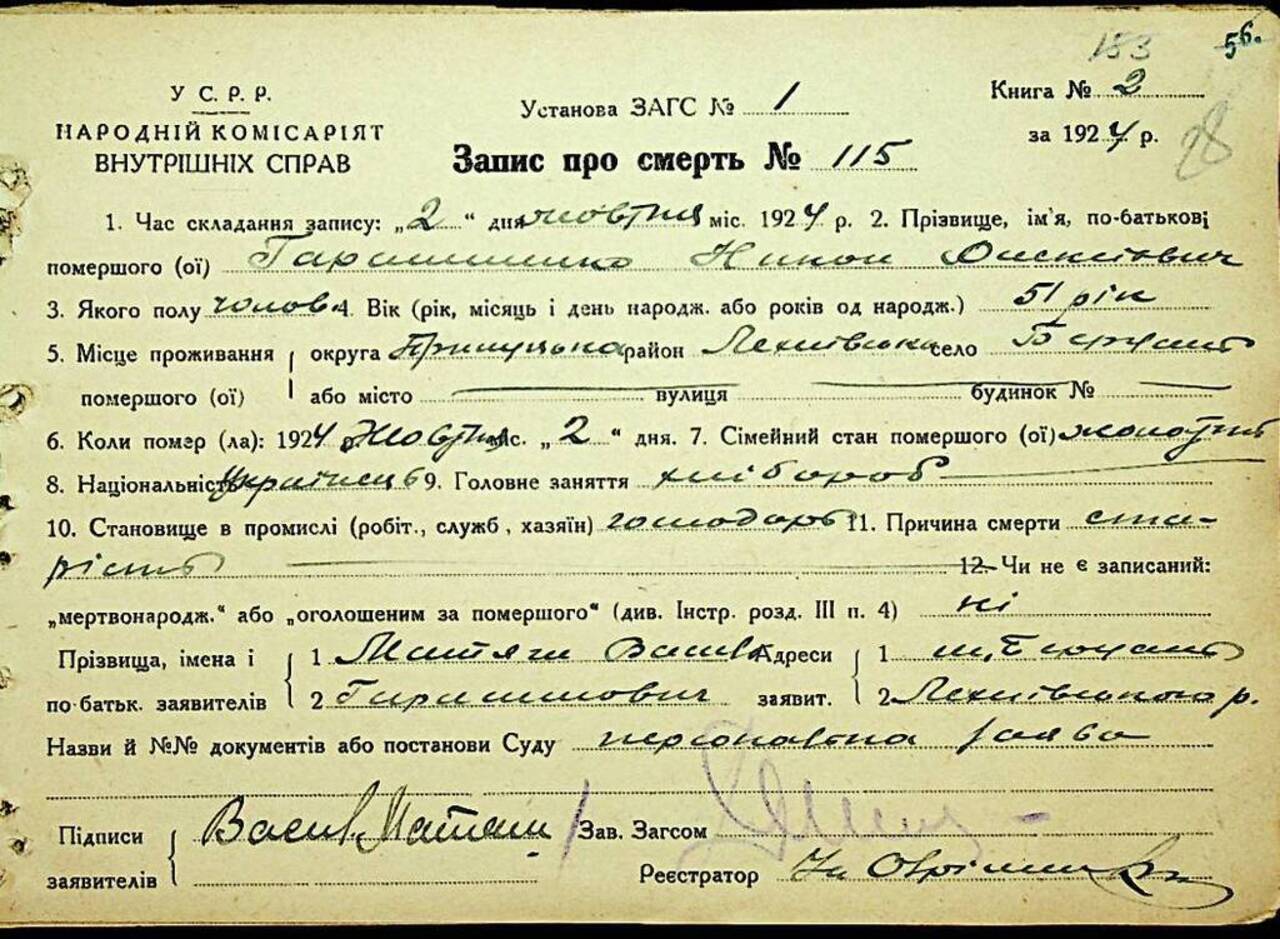 153 56.
У С. Р. Р.
НАРОДНІЙ КОМІСАРІЯТ
ВНУТРІШНІХ СПРАВ
Установа ЗАГС № 1
Книга № 2
за 1924 р.
28
Запис про смерть № 115
1. Час складання запису: „2“ дня жовтня міс. 1924 р. 2. Прізвище, ім'я, по-батькові
помершого (ої)
3. Якого полу чолов. 4. Вік (рік, місяць і день народж. або років од народж.) 51 рік
5. Місце проживання округа Прилуцька район село
помершого (ої) або місто вулиця будинок №
6. Коли помер (ла): 1924 р. Жовтня міс. „2“ дня. 7. Сімейний стан помершого (ої)
8. Національність Українець 9. Головне заняття хлібороб
10. Становище в промислі (робіт., служб, хазяїн) господарь 11. Причина смерти ста-
рість 12. Чи не є записаний:
„мертвонародж.“ або „оголошеним за помершого“ (див. Інстр. розд. III п. 4) ні
Прізвища, імена і 1 Матяш Василь Адреси 1
по-батьк. заявителів 2 Гарасимович заявит. 2 р.
Назви й №№ документів або постанови Суду персональна заява
Підписи Василь Матяш Зав. Загсом
заявителів Реєстратор